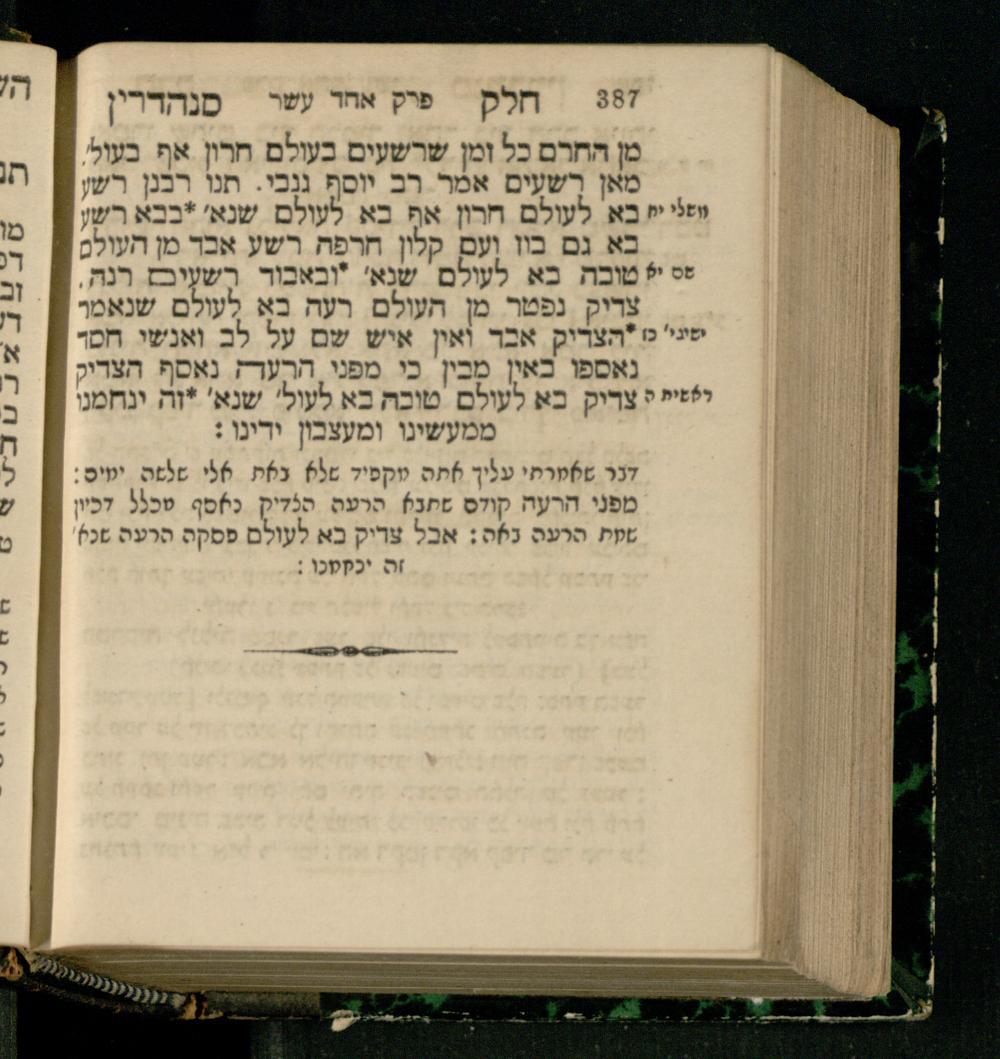 387 חלק פרק אחד עשר סנהדרין
מן החרם כל זמן שרשעים בעולם חרון אף בעול׳.
מאן רשעים אמר רב יוסף גנבי. תנו רבנן רשע
משלי יח בא לעולם חרון אף בא לעולם שנא׳ *בבא רשע
בא גם בוז ועם קלון חרפה רשע אבד מן העולם
שם יא טובה בא לעולם שנא׳ *ובאבוד רשעים רנה.
צדיק נפטר מן העולם רעה בא לעולם שנאמר
ישעי׳ נז *הצדיק אבד ואין איש שם על לב ואנשי חסד
נאספו באין מבין כי מפני הרעה נאסף הצדיק
ראשית ה צדיק בא לעולם טובה בא לעול׳ שנא׳ *זה ינחמנו
ממעשינו ומעצבון ידינו :
דבר שאמרתי עליך אתה מקפיד שלא באת אלי שלשה ימים :
מפני הרעה קודם שתבא הרעה הצדיק נאסף מכלל דכיון
שמת הרעה באה : אבל צדיק בא לעולם פסקה הרעה שנא׳
זה ינחמנו :